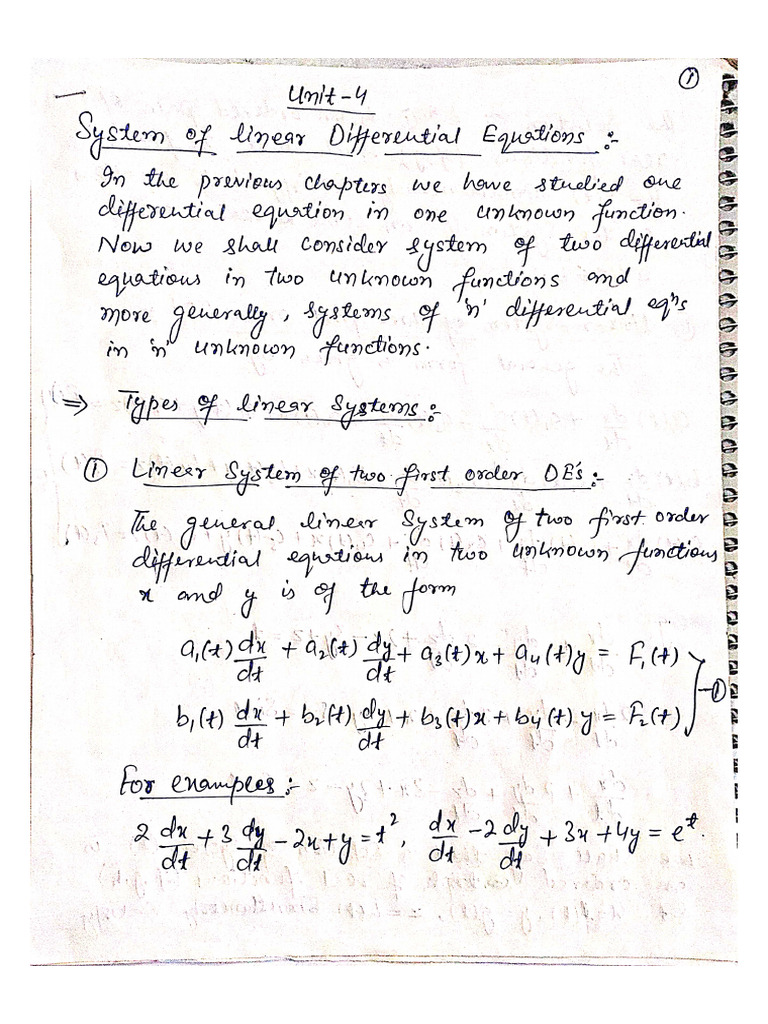 ①
Unit-4
System of linear Differential Equations :-
In the previous chapters we have studied one
differential equation in one unknown function.
Now we shall consider system of two differential
equations in two unknown functions and
more generally, systems of 'n' differential eqⁿs
in 'n' unknown functions.
⇒ Types of linear Systems :-
① Linear System of two first order DE's :-
The general linear System of two first order
differential equations in two unknown functions
x and y is of the form
a₁(t) dx/dt + a₂(t) dy/dt + a₃(t)x + a₄(t)y = F₁(t)
b₁(t) dx/dt + b₂(t) dy/dt + b₃(t)x + b₄(t)y = F₂(t) —①
For examples :-
2 dx/dt + 3 dy/dt - 2x + y = t², dx/dt - 2 dy/dt + 3x + 4y = eᵗ.